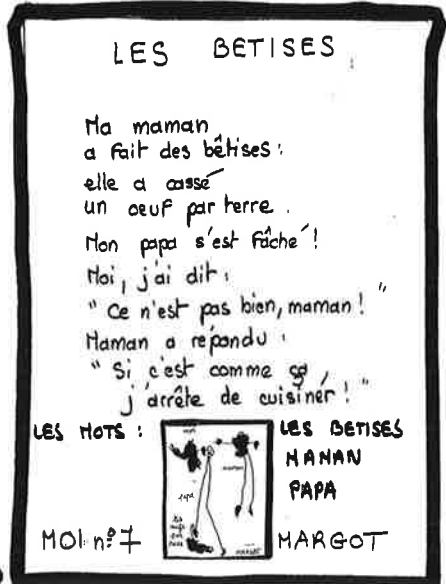 LES BETISES
Ma maman
a fait des bêtises :
elle a cassé
un oeuf par terre.
Mon papa s'est fâché !
Moi, j'ai dit :
" Ce n'est pas bien, maman ! "
Maman a répondu :
" Si c'est comme ça,
j'arrête de cuisiner ! "
LES MOTS :
maman
papa
LES BETISES
MAMAN
PAPA
MOI n° 7
MARGOT